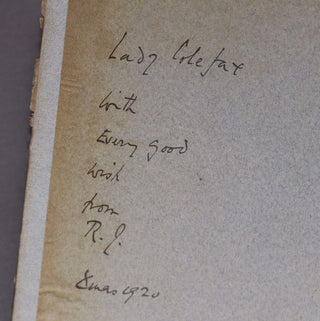 Lady Colefax
with
Every good
wish
from
R. J.
Xmas 1920